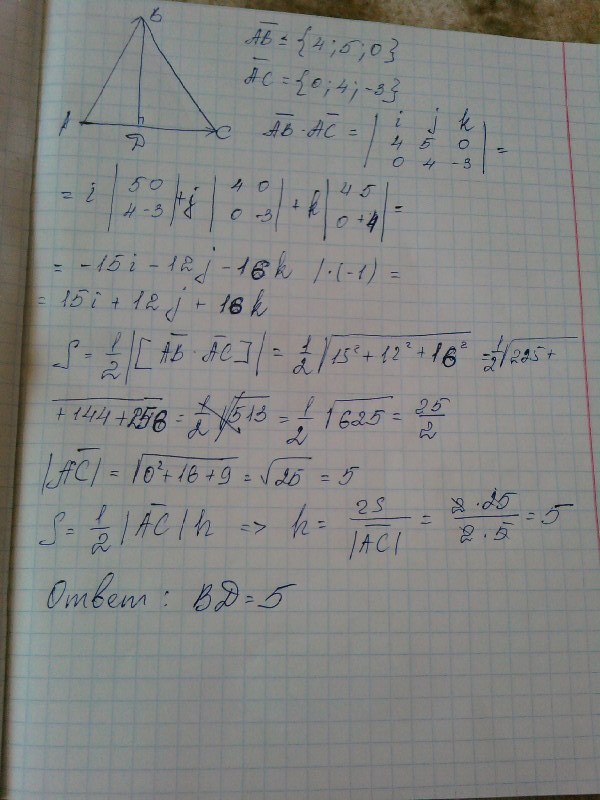 B
A D C
AB = {4; 5; 0}
AC = {0; 4; -3}
AB · AC = | i j k |
4 5 0
0 4 -3 | =
= i | 5 0 | + j | 4 0 | + k | 4 5 | =
4 -3 0 -3 0 +4
= -15i - 12j - 16k | · (-1) =
= 15i + 12j + 16k
S = 1/2 |[AB · AC]| = 1/2 √15² + 12² + 16² = 1/2 √225 +
+ 144 + 256 = 1/2 √513 = 1/2 √625 = 25/2
|AC| = √0² + 16 + 9 = √25 = 5
S = 1/2 |AC| h => h = 2S/|AC| = 2 · 25/2 · 5 = 5
Ответ: BD = 5